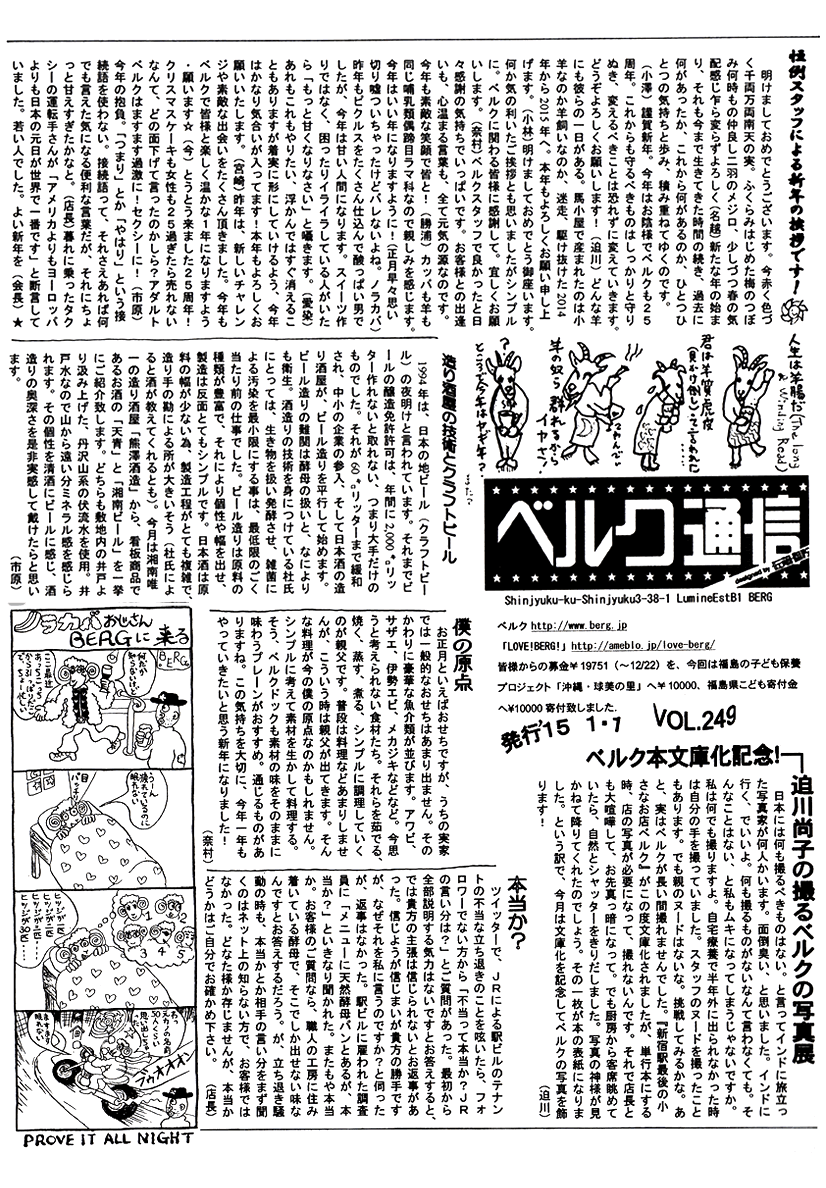 恒例スタッフによる新年の挨拶です!
明けましておめでとうございます。今赤く色づ
く千両万両南天の実。ふくらみはじめた梅のつぼ
み何時もの仲良し二羽のメジロ、少しづつ春の気
配感じ乍ら変らずよろしく(名越)新たな年の始ま
り、それも今まで生きてきた時間の続き、過去に
何があったか、これから何があるのか、ひとつひ
とつの気持ちと歩み、積み重ねてゆくのです。
(小澤)謹賀新年。今年はお陰様でベルクも25
周年。これからも守るべきものはしっかりと守り
ぬき、変えるべきことは恐れずに変えていきます。
どうぞよろしくお願いします!(迫川)どんな羊
にも彼らの一日がある。馬小屋で産まれたのは小
羊なのか羊飼いなのか、迷走、駆け抜けた2014
年から2015年へ。本年もよろしくお願い申し上
げます。(小林)明けましておめでとう御座います。
何か気の利いたご挨拶とも思いましたがシンプル
に。ベルクに関わる皆様に感謝して。宜しくお願
いします。(奈村)ベルクスタッフで良かったと日
々感謝の気持ちでいっぱいです。お客様との出逢
いも、心温まる言葉も、全て元気の源なのです。
今年も素敵な笑顔で皆と!(勝浦)カッパも羊も
同じ哺乳類偶蹄目ラマ科なので親しみを感じます。
今年はいい年になりますように!(正月早々思い
切り嘘ついちゃったけどバレないよね。ノラカバ)
昨年もピクルスをたくさん仕込んで酸っぱい男で
したが、今年は甘い人間になります。スイーツ作
りではなく、困ったりイライラしている人がいた
ら「もっと甘くなりなさい」と囁きます。(愛染)
あれもこれもやりたい、浮かんではすぐ消えるこ
ともありますが着実に形にしていけるよう、今年
はかなり気合いが入ってます!本年もよろしくお
願いいたします。(宮崎)昨年は、新しいチャレン
ジや素敵な出会いをたくさん頂きました。今年も
ベルクで皆様と楽しく温かな1年になりますよう
・願います☆(今)とうとう来ました25周年!
クリスマスケーキも女性も25過ぎたら売れない
なんて、どの面下げて言ったのかしら?アダルト
ベルクはますます過激に!セクシーに!(市原)
今年の抱負。「つまり」とか「やはり」という接
続語を使わない。接続語って、それさえあれば何
でも言えた気になる便利な言葉だが、それにちょ
っと甘えすぎたかなと。(店長)暮れに乗ったタク
シーの運転手さんが「アメリカよりもヨーロッパ
よりも日本の元日が世界で一番です」と断言して
いました。若い人でした。よい新年を(会長)★
人生は羊腸だ(The long
& Winding Road)
君は羊質虎皮
(見かけ倒し)って言われた
羊の奴ら 群れるから
イヤさ!
ところで今年はヤギ年?
ベルク通信
Shinjyuku-ku-Shinjyuku3-38-1 LumineEstB1 BERG
ベルク http://www.berg.jp
「LOVE!BERG!」http://ameblo.jp/love-berg/
皆様からの募金¥19751(~12/22)を、今回は福島の子ども保養
プロジェクト「沖縄・球美の里」へ¥10000、福島県こども寄付金
へ¥10000寄付致しました.
発行'15 1・1 VOL.249
造り酒屋の技術とクラフトビール
1994年は、日本の地ビール(クラフトビー
ル)の夜明けと言われています。それまでビ
ールの醸造免許許可は、年間に2,000㌔リッ
ター作れないと取れない、つまり大手だけの
ものでした。それが60㌔リッターまで緩和
され、中小の企業の参入、そして日本酒の造
り酒屋が、ビール造りを平行して始めます。
ビール造りの難関は酵母の扱いと、なにより
も衛生。酒造りの技術を身につけている杜氏
にとっては、生き物を扱い発酵させ、雑菌に
よる汚染を最小限にする事は、最低限のごく
当たり前の仕事でした。ビール造りは原料の
種類が豊富で、それにより個性や幅を出せ、
製造は反面とてもシンプルです。日本酒は原
料の幅が少ない為、製造工程がとても複雑で、
造り手の勘による所が大きいそう(杜氏によ
ると酒が教えてくれるとも)。今月は湘南唯
一の造り酒屋「熊澤酒造」から、看板商品で
あるお酒の「天青」と「湘南ビール」を一挙
にご紹介致します。どちらも敷地内の井戸よ
り汲み上げた、丹沢山系の伏流水を使用。井
戸水なので山から遠い分ミネラル感を感じら
れます。その個性を清酒にビールに感じ、酒
造りの奥深さを是非実感して戴けたらと思い
ます。(市原)
僕の原点
お正月といえばおせちですが、うちの実家
では一般的なおせちはあまり出ません。その
かわりに豪華な魚介類が並びます。アワビ、
サザエ、伊勢エビ、メカジキなどなど。今思
うと考えられない食材たち。それらを茹でる、
焼く、蒸す、煮る、シンプルに調理していく
のが親父です。普段は料理などあまりしませ
んが、こういう時は親父が出てきます。そん
な料理が今の僕の原点なのかもしれません。
シンプルに考えて素材を生かして料理する。
そう、ベルクドックも素材の味をそのままに
味わうプレーンがおすすめ。通じるものがあ
りますね。この気持ちを大切に、今年一年も
やっていきたいと思う新年になりました!
(奈村)
ベルク本文庫化記念!
迫川尚子の撮るベルクの写真展
日本には何も撮るべきものはない。と言ってインドに旅立っ
た写真家が何人かいます。面倒臭い、と思いました。インドに
行く、でいいよ。何も撮るものがないなんて言わなくても。そ
んなことはない、と私もムキになってしまうじゃないですか。
私は何でも撮りますよ。自宅療養で半年外に出られなかった時
は自分の手を撮っていました。スタッフのヌードを撮ったこと
もあります。でも親のヌードはないな。挑戦してみるかな。あ
と、実はベルクが長い間撮れませんでした。『新宿駅最後の小
さなお店ベルク』がこの度文庫化されましたが、単行本にする
時、店の写真が必要になって、撮れないんです。それで店長と
も大喧嘩して、お先真っ暗になって。でも厨房から客席眺めて
いたら、自然とシャッターをきりだしました。写真の神様が見
かねて降りてくれたのでしょう。その一枚が本の表紙になりま
した。という訳で、今月は文庫化を記念してベルクの写真を飾
ります!(迫川)
本当か?
ツイッターで、JRによる駅ビルのテナン
トの不当な立ち退きのことを呟いたら、フォ
ロワーでない方から「不当って本当か?JR
の言い分は?」とご質問があった。最初から
全部説明する気力はないですとお答えすると、
では貴方の主張は信じられないとお返事があ
った。信じようが信じまいが貴方の勝手です
が、なぜそれを私に言うのですか?と伺った
が、返事はなかった。駅ビルに雇われた調査
員に「メニューに天然酵母パンとあるが、本
当か?」といきなり聞かれた。またもや本当
か。お客様のご質問なら、職人の工房に住み
着いている酵母で、そこでしか出せない味な
んですとお答えするだろう。が、立ち退き騒
動の時も、本当かとか相手の言い分をまず聞
くのはネット上の知らない方で、お客様では
なかった。どなた様か存じませんが、本当か
どうかはご自分でお確かめ下さい。(店長)
ノラカバおじさん
BERGに来る
BERG
うーん
疲れているのに
眠れない
ヒツジが一匹
ヒツジが二匹
1
2
3
4
5
ブゥオオオン
PROVE IT ALL NIGHT